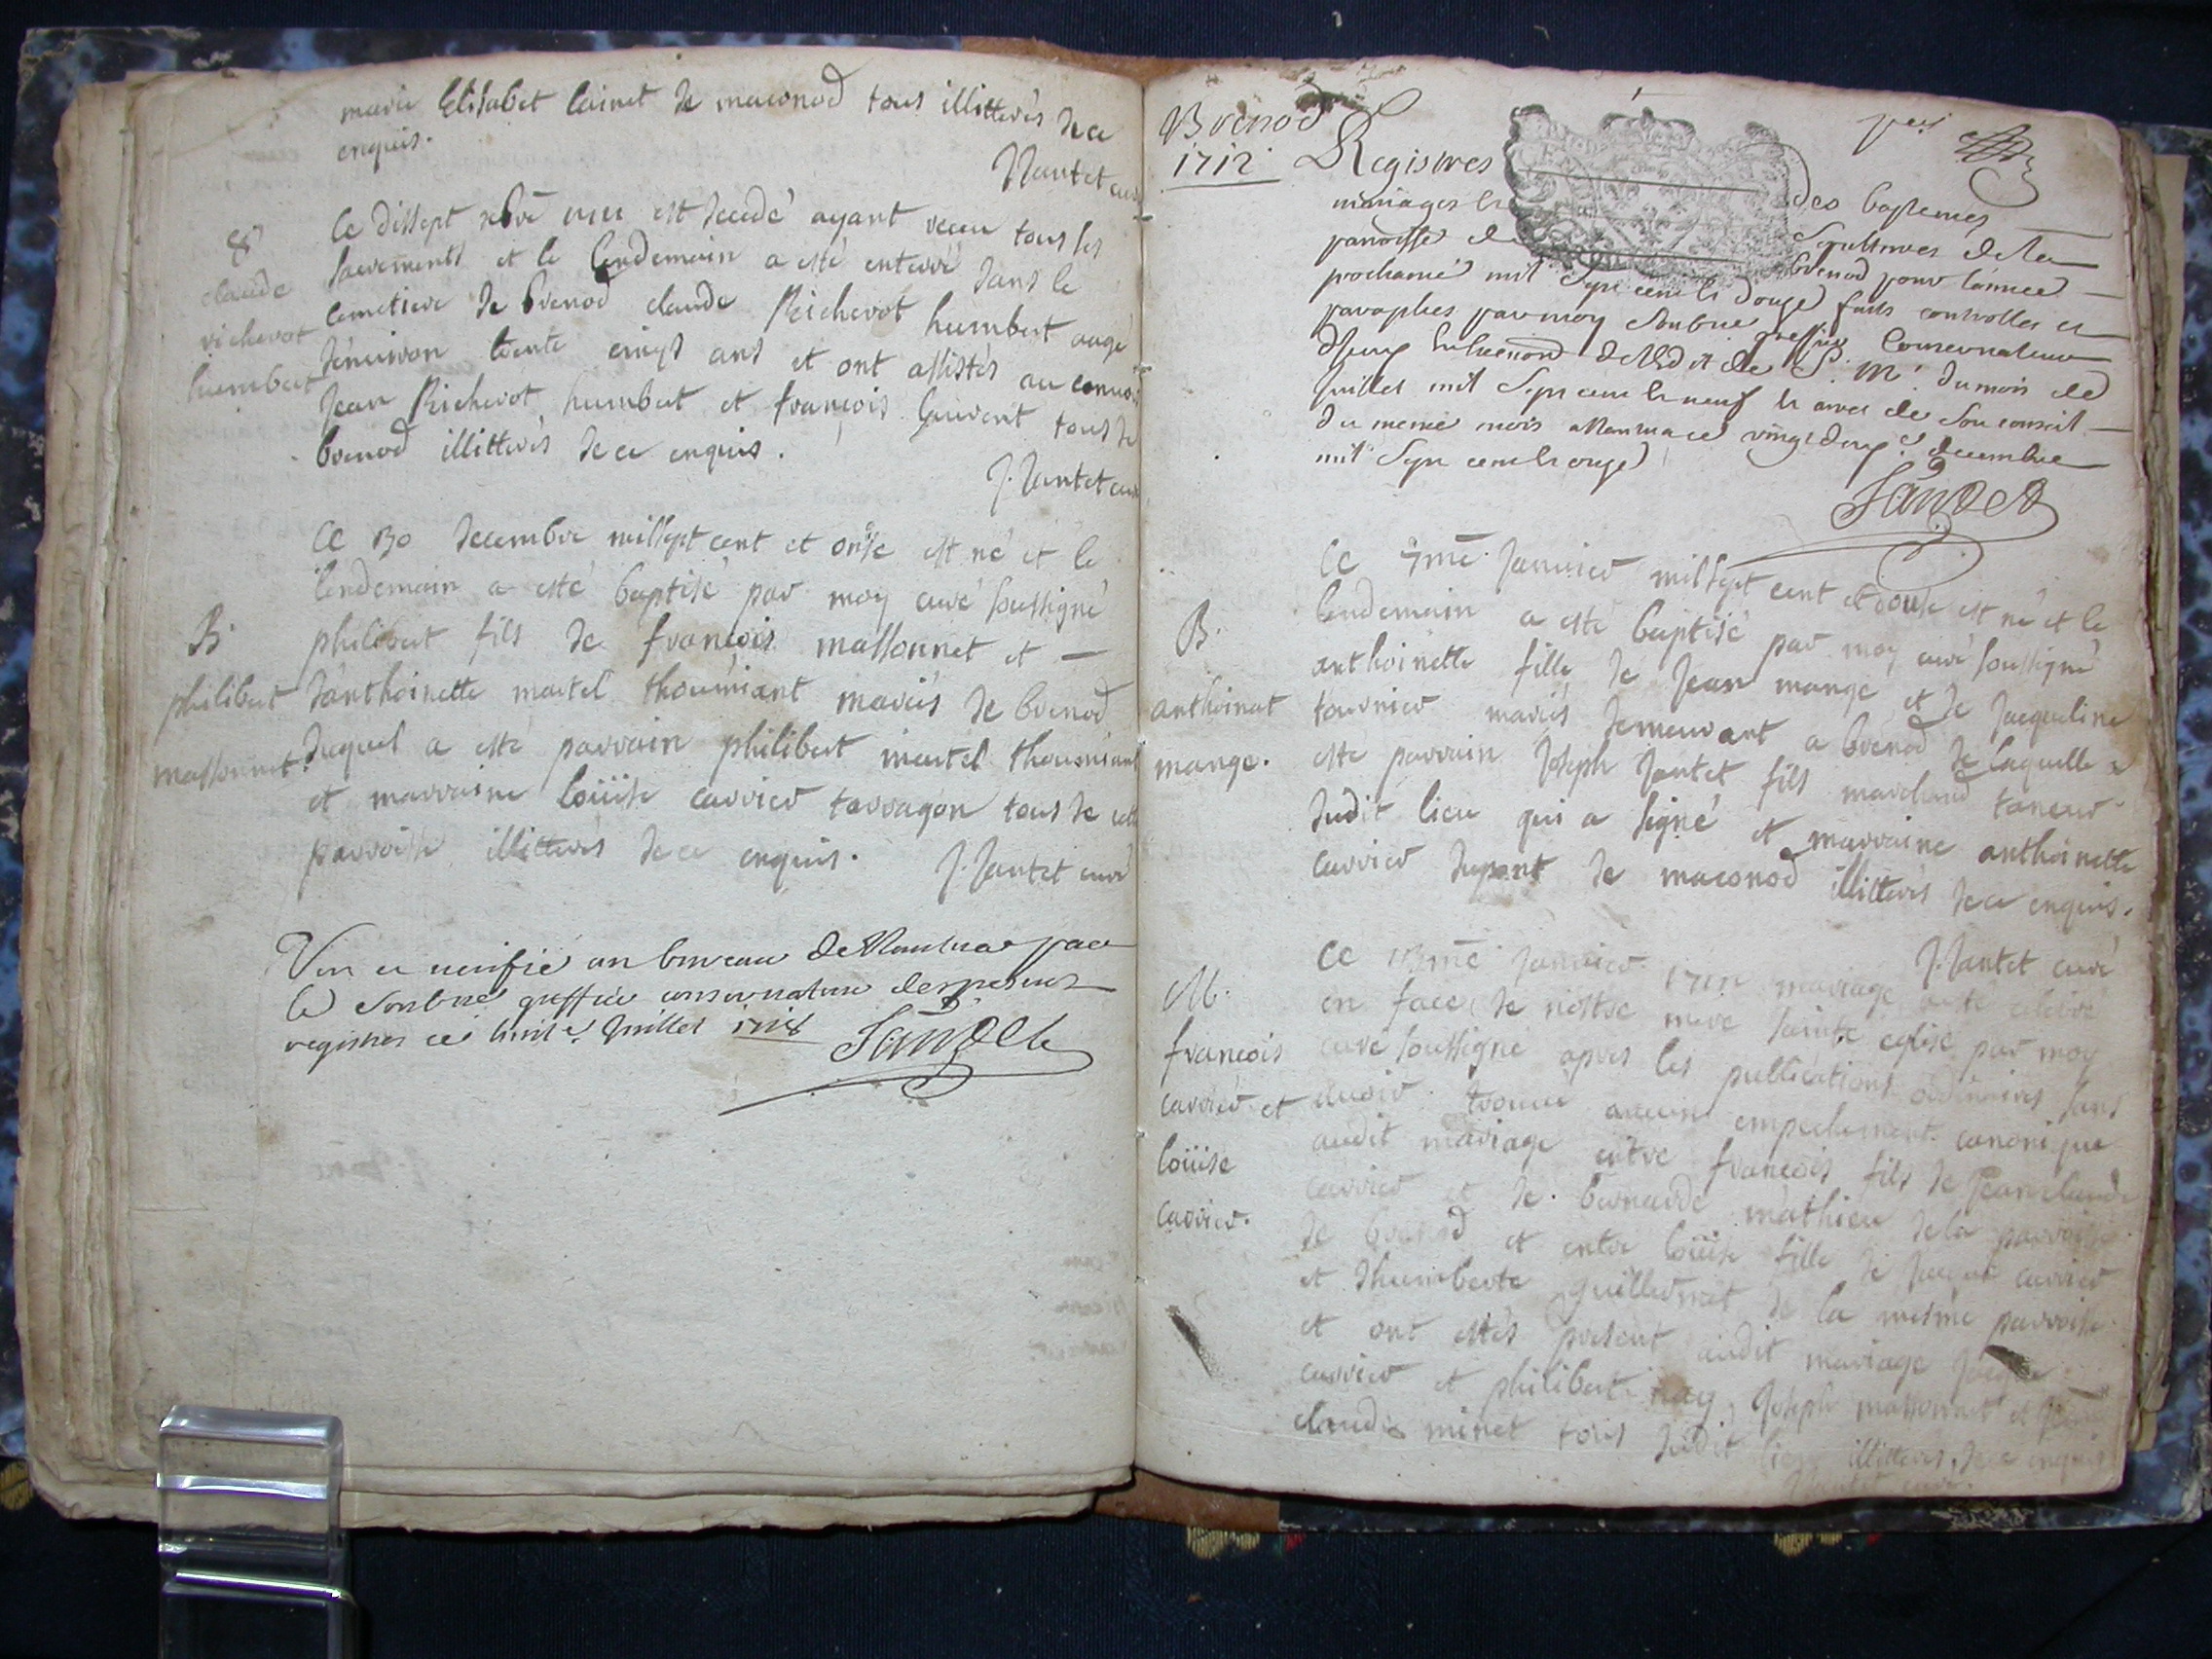 marie Elisabet lairet de maconod tous illitterés de ce
enquis.
J Jantet curé
8
claude
richerot
humbert
Ce dissept xbre est decedé ayant receu tous les
sacrements et le lendemain a esté enterré dans le
cemetiere de brenod claude Richerot humbert aagé
d'environ trente cinqs ans et ont assistés au convois
Jean Richerot humbert et françois laurent tous de
brenod illitterés de ce enquis.
J. Jantet curé
B.
philibert
massonnet.
Ce 30 decembre millsept cent et onse est né et le
lendemain a esté baptisé par moy curé soussigné
philibert fils de françois massonnet et —
d'anthoinette martel thouniant mariés de brenod
duquel a esté parrain philibert martel thouniant
et marraine loüise carrier tarragon tous de cette
parroisse illitterés de ce enquis.
J. Jantet curé
Veu et verifié au bureau de Nantua par
le soubné greffier conservateur des presents
registres ce huite Juillet 1718
Brenod
1712
Registres des baptemes
mariages et Sepultures de la
paroisse de brenod pour l'année
prochaine mil Sept cent et douze faits controller et
paraphes par moy Soubné greffier Conservateur
de S. M. du mois de
Juillet mil Sept cent et neuf et arret de Son conseil
du meme mois a Nantua ce vingt deuxe decembre
mil Sept cent et onze
B.
anthoinet
mange.
Ce 7me Janvier millsept cent et douse est né et le
lendemain a esté baptisé par moy curé soussigné
anthoinette fille de Jean mange et de Jacqueline
tournier mariés demeurant a brenod de laquelle a
esté parrain Joseph Jantet fils marchand taneur
dudit lieu qui a signé et marraine anthoinette
carrier dupont de maconod illitterés de ce enquis.
J. Jantet curé
M.
françois
carrier et
loüise
carrier.
Ce 13me Janvier 1712 mariage a esté celebré
en face de nostre mere sainte eglise par moy
curé soussigné apres les publications ordinaires sans
avoir trouvé aucun empechement canonique
audit mariage entre françois fils de Jean claude
carrier et de bernarde mathieu de la parroisse
de brenod et entre loüise fille de Jacque carrier
et d'humberte guillermet de la mesme parroisse
et ont estés present audit mariage Jacque
carrier et philibert nay, Joseph massonnet et Jean
claude minet tous dudit lieu illitterés de ce enquis
J Jantet curé.